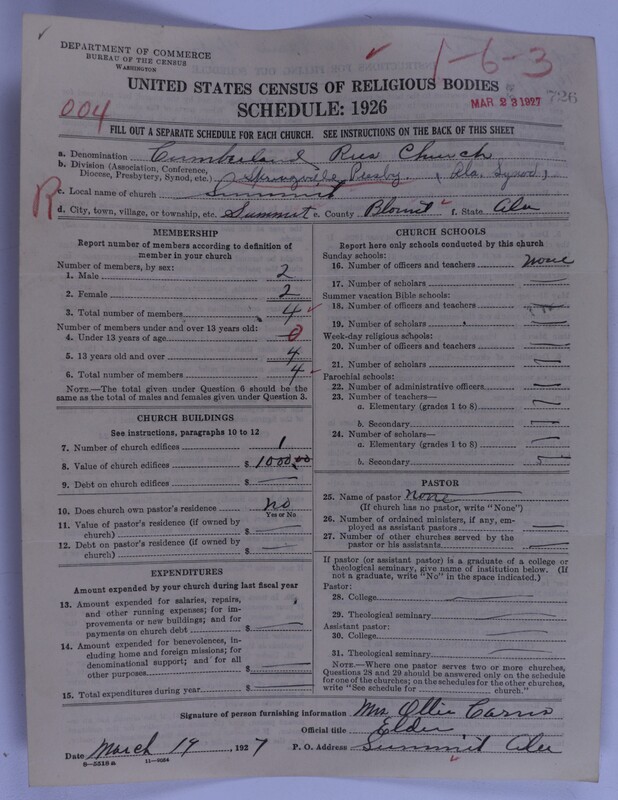 1-6-3
DEPARTMENT OF COMMERCE
BUREAU OF THE CENSUS
WASHINGTON
UNITED STATES CENSUS OF RELIGIOUS BODIES
SCHEDULE: 1926
MAR 23 1927 726
004
FILL OUT A SEPARATE SCHEDULE FOR EACH CHURCH. SEE INSTRUCTIONS ON THE BACK OF THIS SHEET
a. Denomination Cumberland Pres Church
b. Division (Association, Conference,
Diocese, Presbytery, Synod, etc.) Springville Presby. (Ala. Synod)
R
c. Local name of church Summit
d. City, town, village, or township, etc. Summit e. County Blount f. State Ala
MEMBERSHIP
Report number of members according to definition of
member in your church
Number of members, by sex:
1. Male 2
2. Female 2
3. Total number of members 4
Number of members under and over 13 years old:
4. Under 13 years of age 0
5. 13 years old and over 4
6. Total number of members 4
NOTE.—The total given under Question 6 should be
same as the total of males and females given under Question 3.
CHURCH BUILDINGS
See instructions, paragraphs 10 to 12
7. Number of church edifices 1
8. Value of church edifices $ 1000.00
9. Debt on church edifices $
10. Does church own pastor's residence no
Yes or No
11. Value of pastor's residence (if owned by
church) $
12. Debt on pastor's residence (if owned by
church) $
EXPENDITURES
Amount expended by your church during last fiscal year
13. Amount expended for salaries, repairs,
and other running expenses; for im-
provements or new buildings; and for
payments on church debt $
14. Amount expended for benevolences, in-
cluding home and foreign missions; for
denominational support; and for all
other purposes $
15. Total expenditures during year $
CHURCH SCHOOLS
Report here only schools conducted by this church
Sunday schools:
16. Number of officers and teachers none
17. Number of scholars
Summer vacation Bible schools:
18. Number of officers and teachers
19. Number of scholars
Week-day religious schools:
20. Number of officers and teachers
21. Number of scholars
Parochial schools:
22. Number of administrative officers
23. Number of teachers—
a. Elementary (grades 1 to 8)
b. Secondary
24. Number of scholars—
a. Elementary (grades 1 to 8)
b. Secondary
PASTOR
25. Name of pastor none
(If church has no pastor, write "None")
26. Number of ordained ministers, if any, em-
ployed as assistant pastors
27. Number of other churches served by the
pastor or his assistants
If pastor (or assistant pastor) is a graduate of a college or
theological seminary, give name of institution below. (If
not a graduate, write "No" in the space indicated.)
Pastor:
28. College
29. Theological seminary
Assistant pastor:
30. College
31. Theological seminary
NOTE.—Where one pastor serves two or more churches,
Questions 28 and 29 should be answered only on the schedule
for one of the churches; on the schedules for the other churches,
write "See schedule for church."
Signature of person furnishing information Mrs Ollie Carns
Official title Elder
Date March 19, 1927 P. O. Address Summit Ala
8—5518a 11—9084